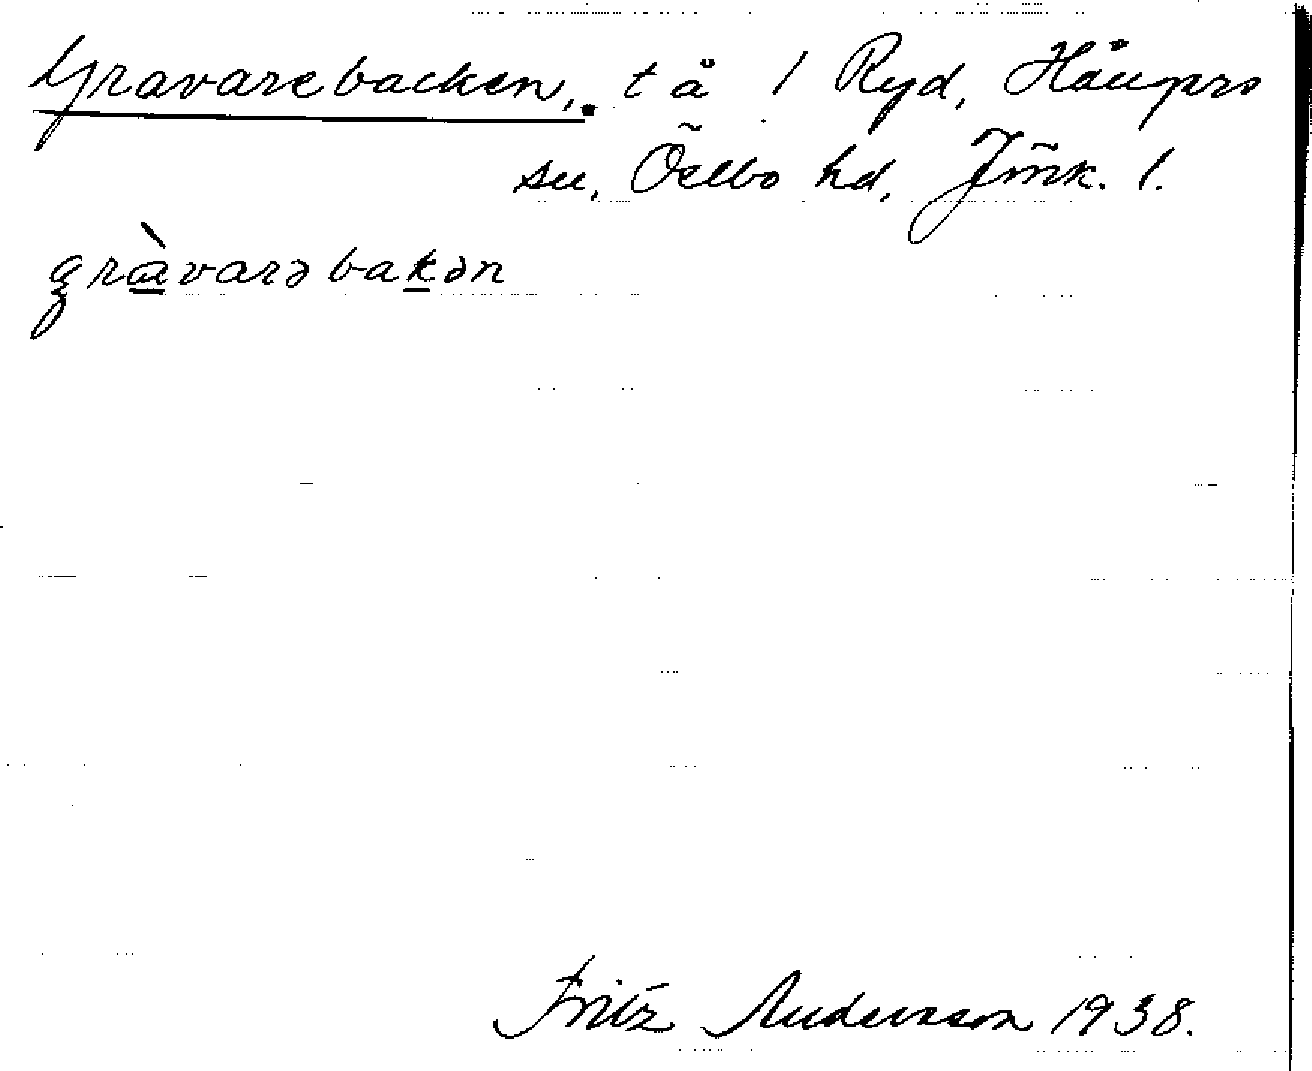 Gravarebacken, tå 1 Ryd, Hångers
sn, Östbo hd, Jönk. l.
gràvarəbakən
Fritz Andersson 1938.